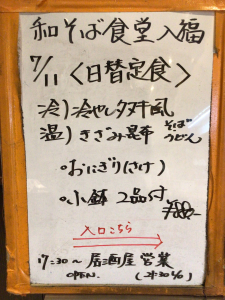 和そば食堂 入福
7/11 〈日替定食〉
冷)冷やしタヌキ風
温)きざみ昆布
そば
うどん
・おにぎり(さけ)
・小鉢 2品付
入口こちら
17:30〜 居酒屋 営業
OPEN.